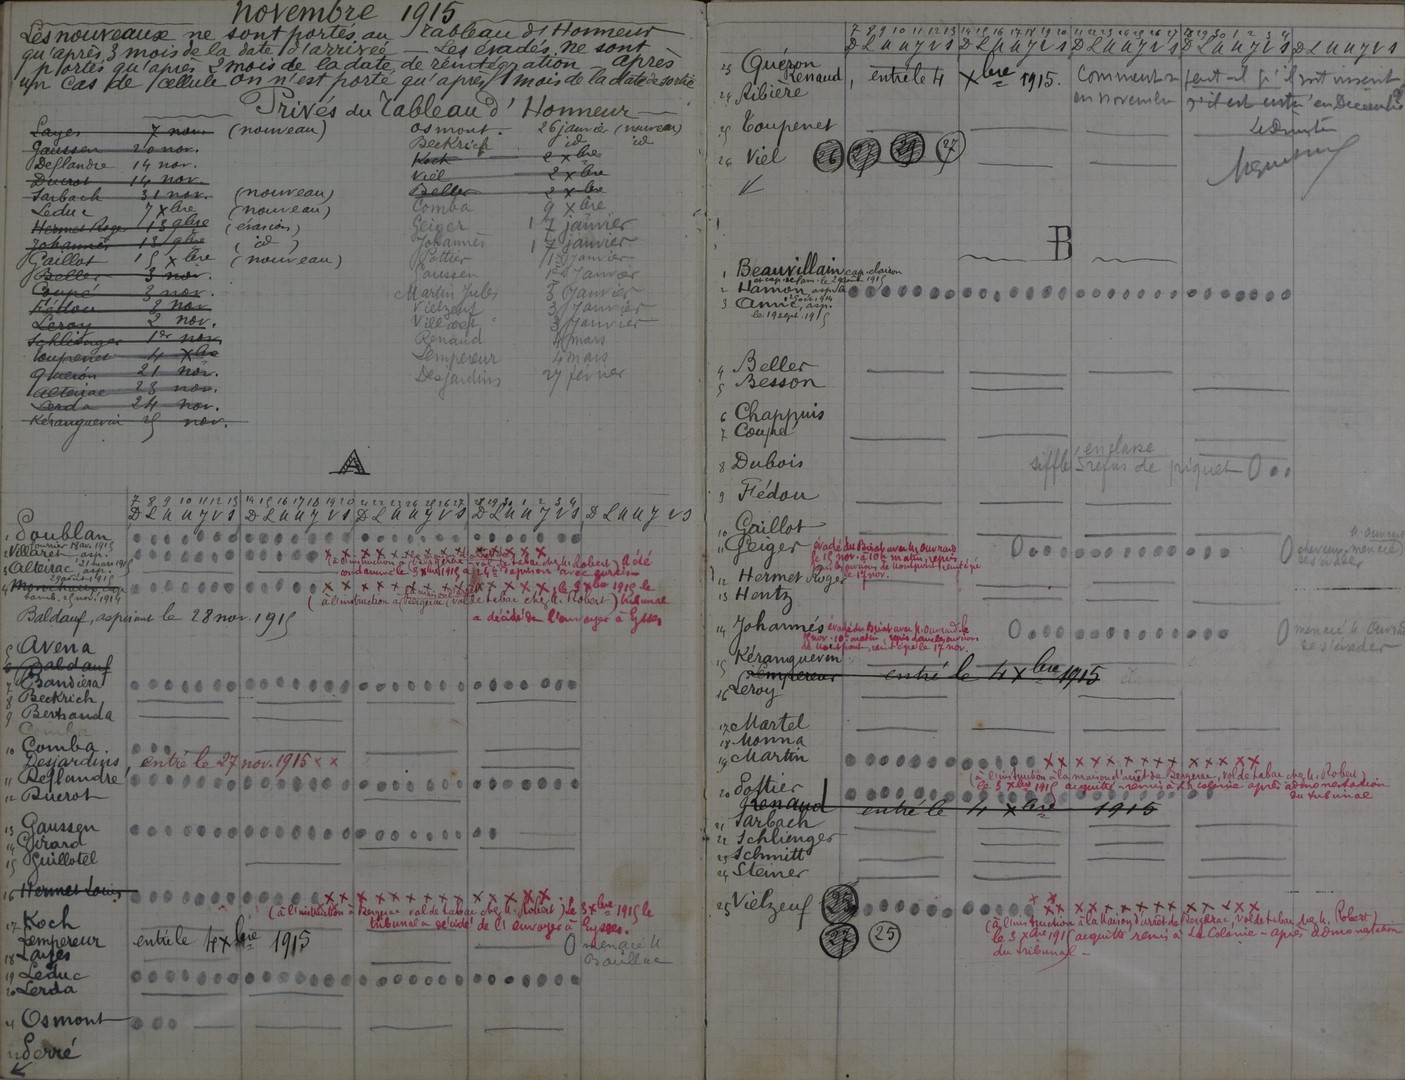 novembre 1915
Les nouveaux ne sont portés au Tableau d'Honneur
qu'après 3 mois de la date d'arrivée — Les évadés ne sont
portés qu'après 2 mois de la date de réintégration — après
un cas de cellule on n'est porté qu'après 1 mois de la date de sortie
Privés du Tableau d'Honneur
Layes 7 nov. (nouveau)
Gaussen 20 nov.
Deflandre 14 nov.
Ducrot 14 nov.
Sarbach 31 nov. (nouveau)
Leduc 7 xbre (nouveau)
Hermet Roger 13 9bre (évasion)
Johannès 13 9bre (id)
Gaillot 15 xbre (nouveau)
Beller 3 nov.
Coupé 3 nov.
Fédou 8 nov.
Leroy 2 nov.
Schlienger 1er nov.
Toupenet 4 xbre
Quéron 21 nov.
Alteirac 23 nov.
Lerda 24 nov.
Kéranguevin 25 nov.
Osmont 26 janvier (nouveau)
Beckrich id id
Koch 2 xbre
Viel 2 xbre
Beller 2 xbre
Comba 9 xbre
Geiger 17 janvier
Johannès 17 janvier
Pottier 1er janvier
Gaussen 1er Janvier
Martin Jules 3 Janvier
Vielzeuf 3 Janvier
Villaret 3 Janvier
Renaud 4 mars
Lempereur 4 mars
Desjardins 27 fevrier
A
7 8 9 10 11 12 13 14 15 16 17 18 19 20 21 22 23 24 25 26 27 28 29 30 1 2 3 4
D L M M J V S D L M M J V S D L M M J V S D L M M J V S D L M M J V S
1 Doublan
2 Villaret asp.
3 Alteirac asp.
(à l'instruction à Bergerac, vol de tabac chez M. Robert) A été
condamné le 3 xbre 1915 à
(à l'instruction à Bergerac, vol de tabac chez M. Robert) le 3 xbre 1915 le tribunal
a décidé de l'envoyer à Eysses
Baldauf, aspirant le 28 nov. 1915
5 Avena
6 Baldauf
7 Bandiera
8 Beckrich
9 Bertranda
Comba
10 Comba.
Desjardins, entré le 27 nov. 1915 x x
11 Deflandre
12 Ducrot
13 Gaussen
14 Girard
15 Guillotel
16 Hermet Louis
(à l'instruction à Bergerac vol de tabac chez M. Robert) le 3 xbre 1915 le
tribunal a décidé de l'envoyer à Eysses.
17 Koch
Lempereur entré le 4 xbre 1915 0 menace M
18 Layes
19 Leduc
20 Lerda
21 Osmont
22 Serré
7 8 9 10 11 12 13 14 15 16 17 18 19 20 21 22 23 24 25 26 27 28 29 30 1 2 3 4
D L M M J V S D L M M J V S D L M M J V S D L M M J V S D L M M J V S
23 Quéron
Renaud, entré le 4 xbre 1915. Comment se peut-il qu'il soit inscrit
24 Ribière en novembre s'il est entré en Décembre
25 Toupenet Le Directeur
26 Viel 26 27 29 27
B
1 Beauvillain cap. clairon
2 Hamon, asp.
3 asp.
le 19 sept. 1915
4 Beller
5 Besson
6 Chappuis
7 Coupé
8 Dubois siffle en classe refus de piquet 0
9 Fédou
10 Gaillot
11 Geiger évadé du Birat avec M. Ouvrard
le 15 nov. à 10h matin, repris
le 17 nov.
0
12 Hermet Roger
13 Hentz
14 Johannés évadé du Birat avec M. Ouvrard le
15 nov. 10h matin, repris
réintégré le 17 nov.
0 menacé M. Ouvrard
de s'évader
15 Kéranguevin
Lempereur entré le 4 xbre 1915
16 Leroy
17 Martel
18 Monna
19 Martin
(à l'instruction à la maison d'arrêt de Bergerac, vol de tabac chez M. Robert)
le 3 xbre 1915 acquitté - remis à la colonie après admonestation
du tribunal
20 Pottier
Renaud entré le 4 xbre 1915
21 Sarbach
22 Schlienger
23 Schmitt
24 Steiner
25 Vielzeuf 25
27 25
(à l'instruction à la Maison d'arrêt de Bergerac, vol de tabac chez M. Robert)
le 3 xbre 1915 acquitté remis à La Colonie - après admonestation
du tribunal —